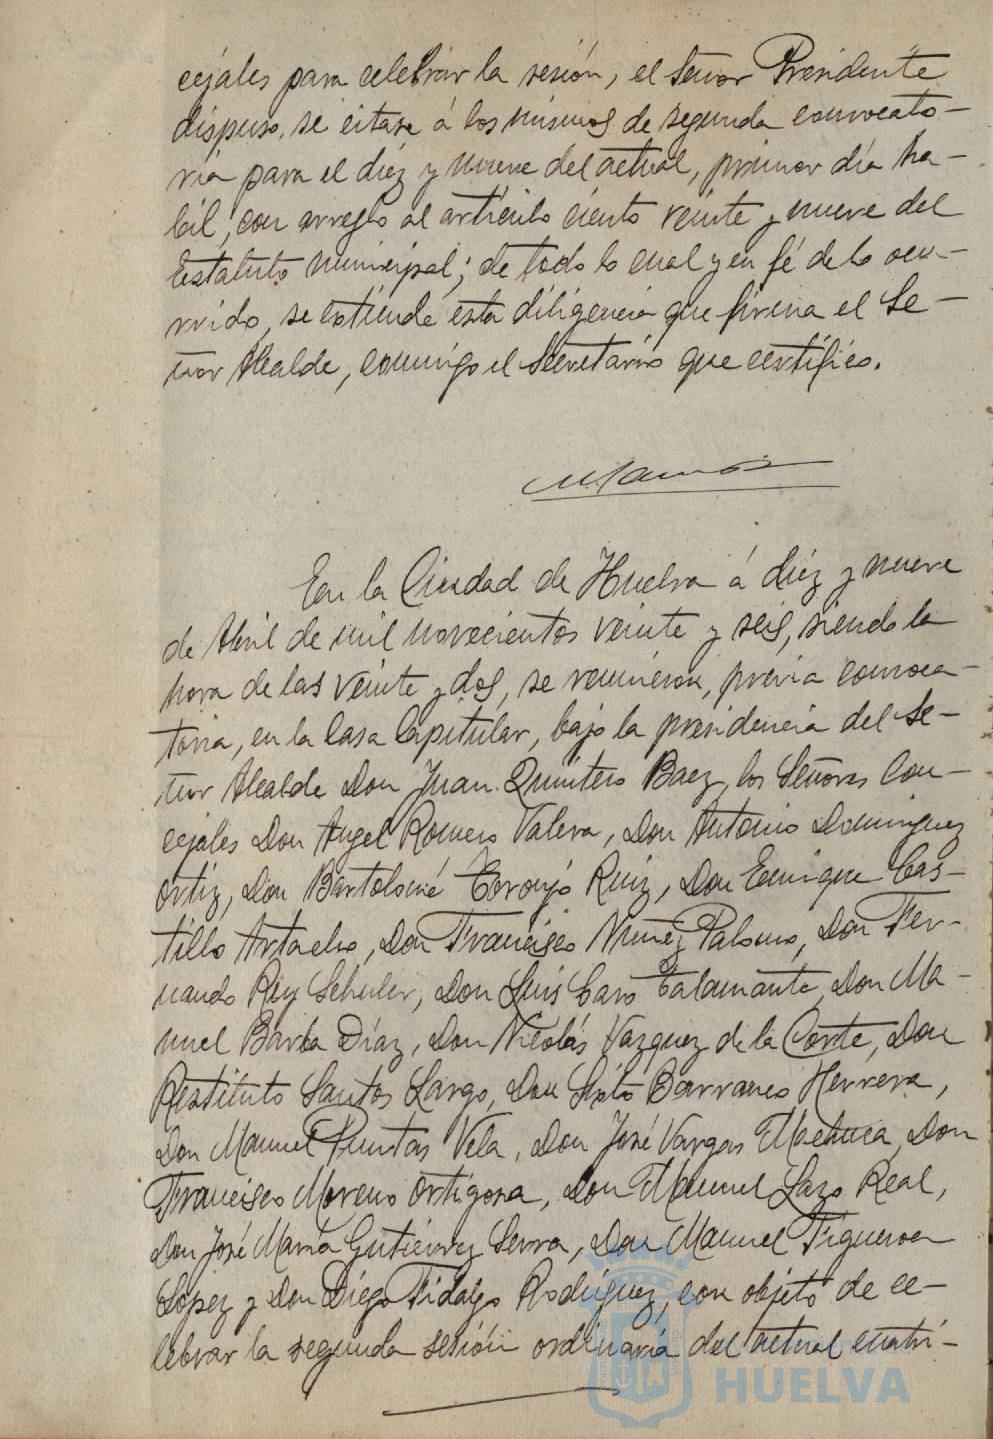 cejales para celebrar la sesión, el Señor Presidente
dispuso, se citase á los mismos de segunda convocato-
ria para el diéz y nueve del actual, primer día há-
bil, con arreglo al artículo ciento veinte y nueve del
Estatuto municipal; de todo lo cual y en fé de lo ocu-
rrido, se extiende esta diligencia que firma el Se-
ñor Alcalde, conmigo el Secretario que certifico.
En la Ciudad de Huelva á diéz y nueve
de Abril de mil novecientos veinte y seis, siendo la
hora de las veinte y dos, se reunieron, previa convoca-
toria, en la Casa Capitular, bajo la presidencia del Se-
ñor Alcalde Don Juan Quintero Baez, los Señores Con-
cejales Don Angel Romero Valera, Don Antonio Dominguez
Ortiz, Don Bartolomé Toronjo Ruiz, Don Enrique Cas-
tillo Artacho, Don Francisco Nuñez Palomo, Don Fer-
nando Rey Schuler, Don Luis Caro Talamante, Don Ma-
nuel Barba Díaz, Don Nicolás Vazquez de la Corte, Don
Restituto Santos Largo, Don Sixto Barranco Herrera,
Don Manuel Puntas Vela, Don José Vargas Machuca, Don
Francisco Moreno Ortigosa, Don Manuel Lazo Real,
Don José María Gutierrez Serra, Don Manuel Figueroa
López y Don Diego Fidalgo Rodriguez, con objeto de ce-
lebrar la segunda sesión ordinaria del actual cuatri-
HUELVA